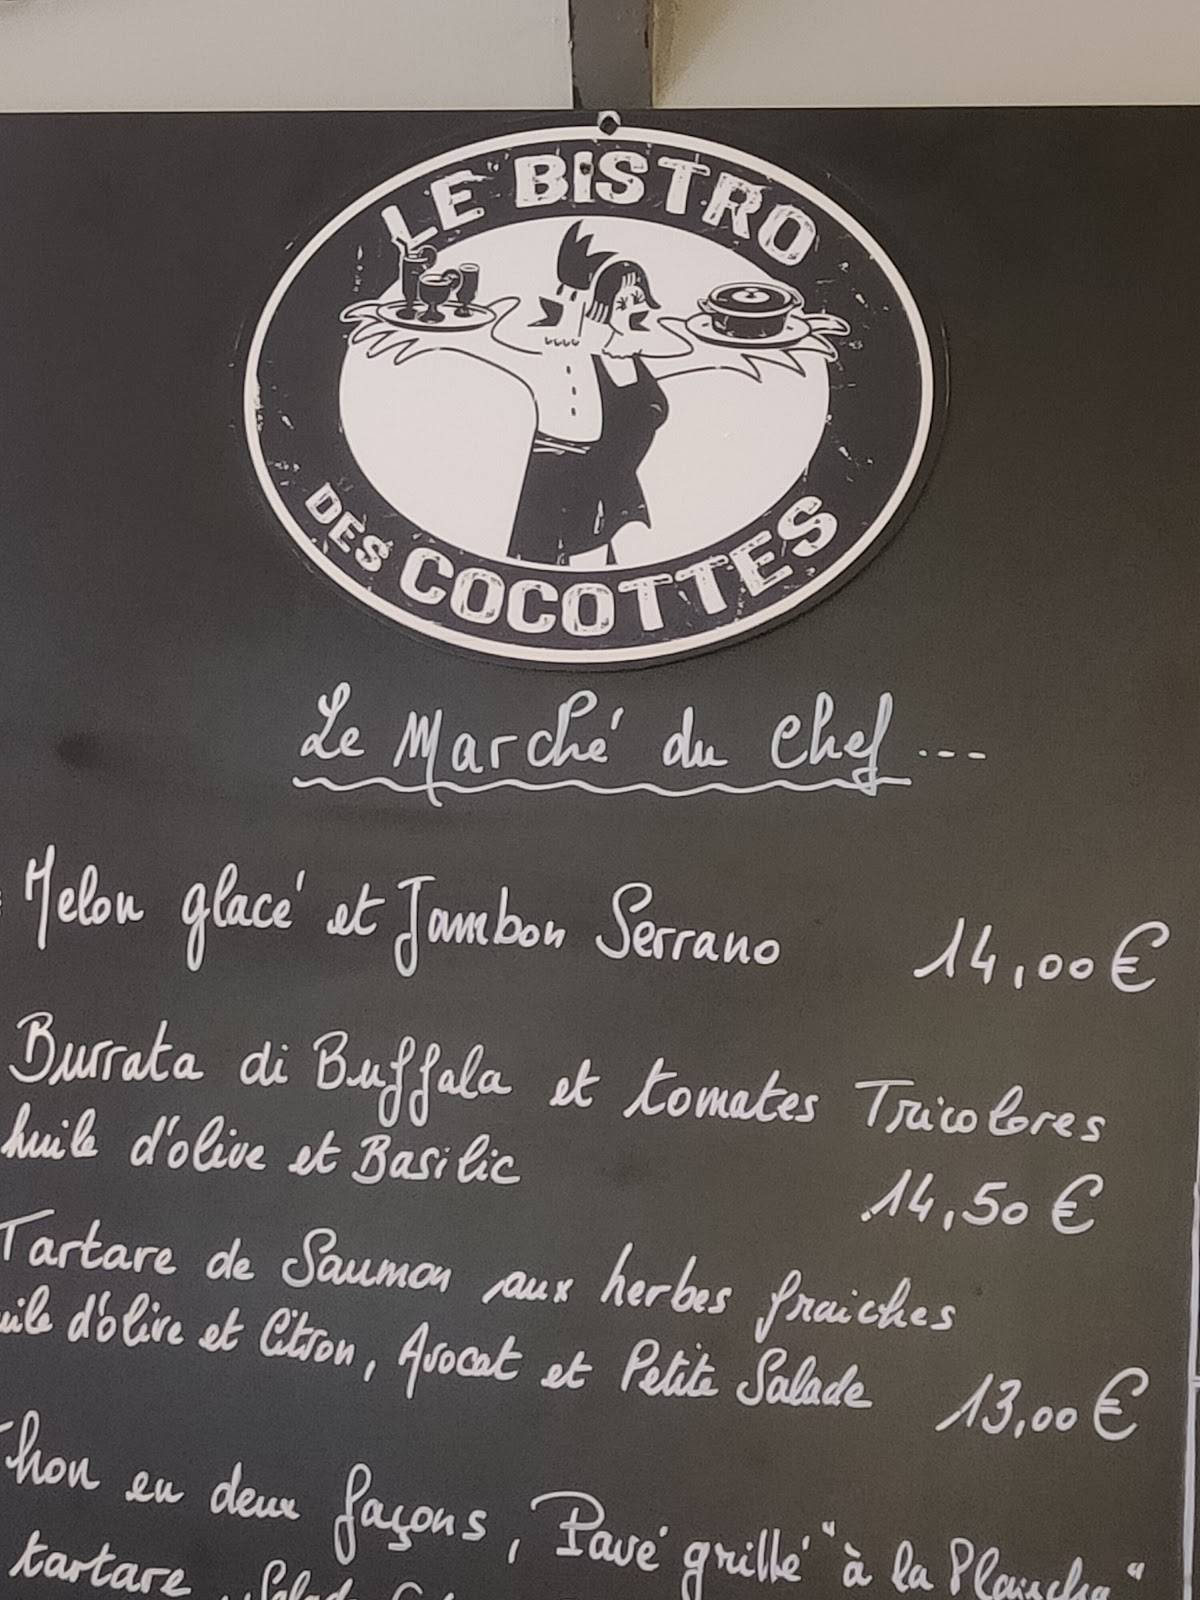 LE BISTRO
DES COCOTTES
Le Marché du Chef ...
Melon glacé et Jambon Serrano 14,00 €
Burrata di Buffala et tomates Tricolores
huile d'olive et Basilic 14,50 €
Tartare de Saumon aux herbes fraiches
uile d'olive et Citron, Avocat et Petite Salade 13,00 €
Thon en deux façons, Pavé grillé "à la Plancha"
tartare